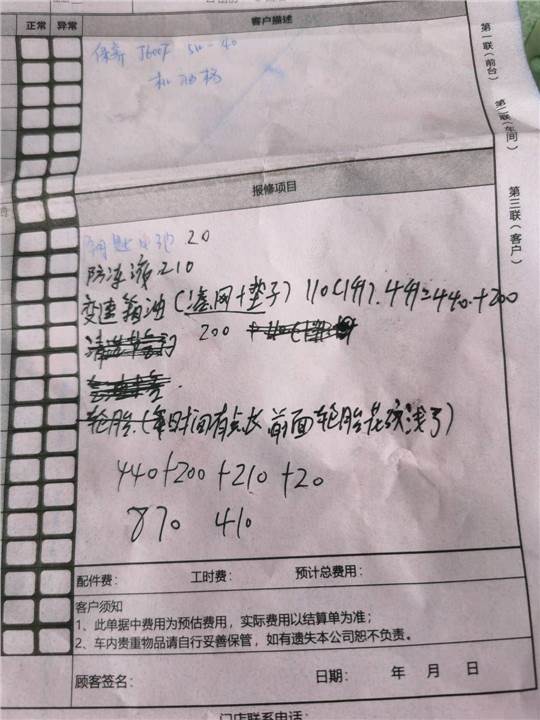 正常 异常
客户描述
保养 5W-40
机油格
第一联(前台)
第二联(车间)
第三联(客户)
报修项目
钥匙电池 20
防冻液 210
变速箱油(滤网+垫子)110(1升).4升=440.+200
200
轮胎.(年时间有点长 前面轮胎花纹浅了)
440+200+210+20
870 410
配件费： 工时费： 预计总费用：
客户须知
1、此单据中费用为预估费用，实际费用以结算单为准；
2、车内贵重物品请自行妥善保管，如有遗失本公司恕不负责。
顾客签名： 日期： 年 月 日
门店联系电话：